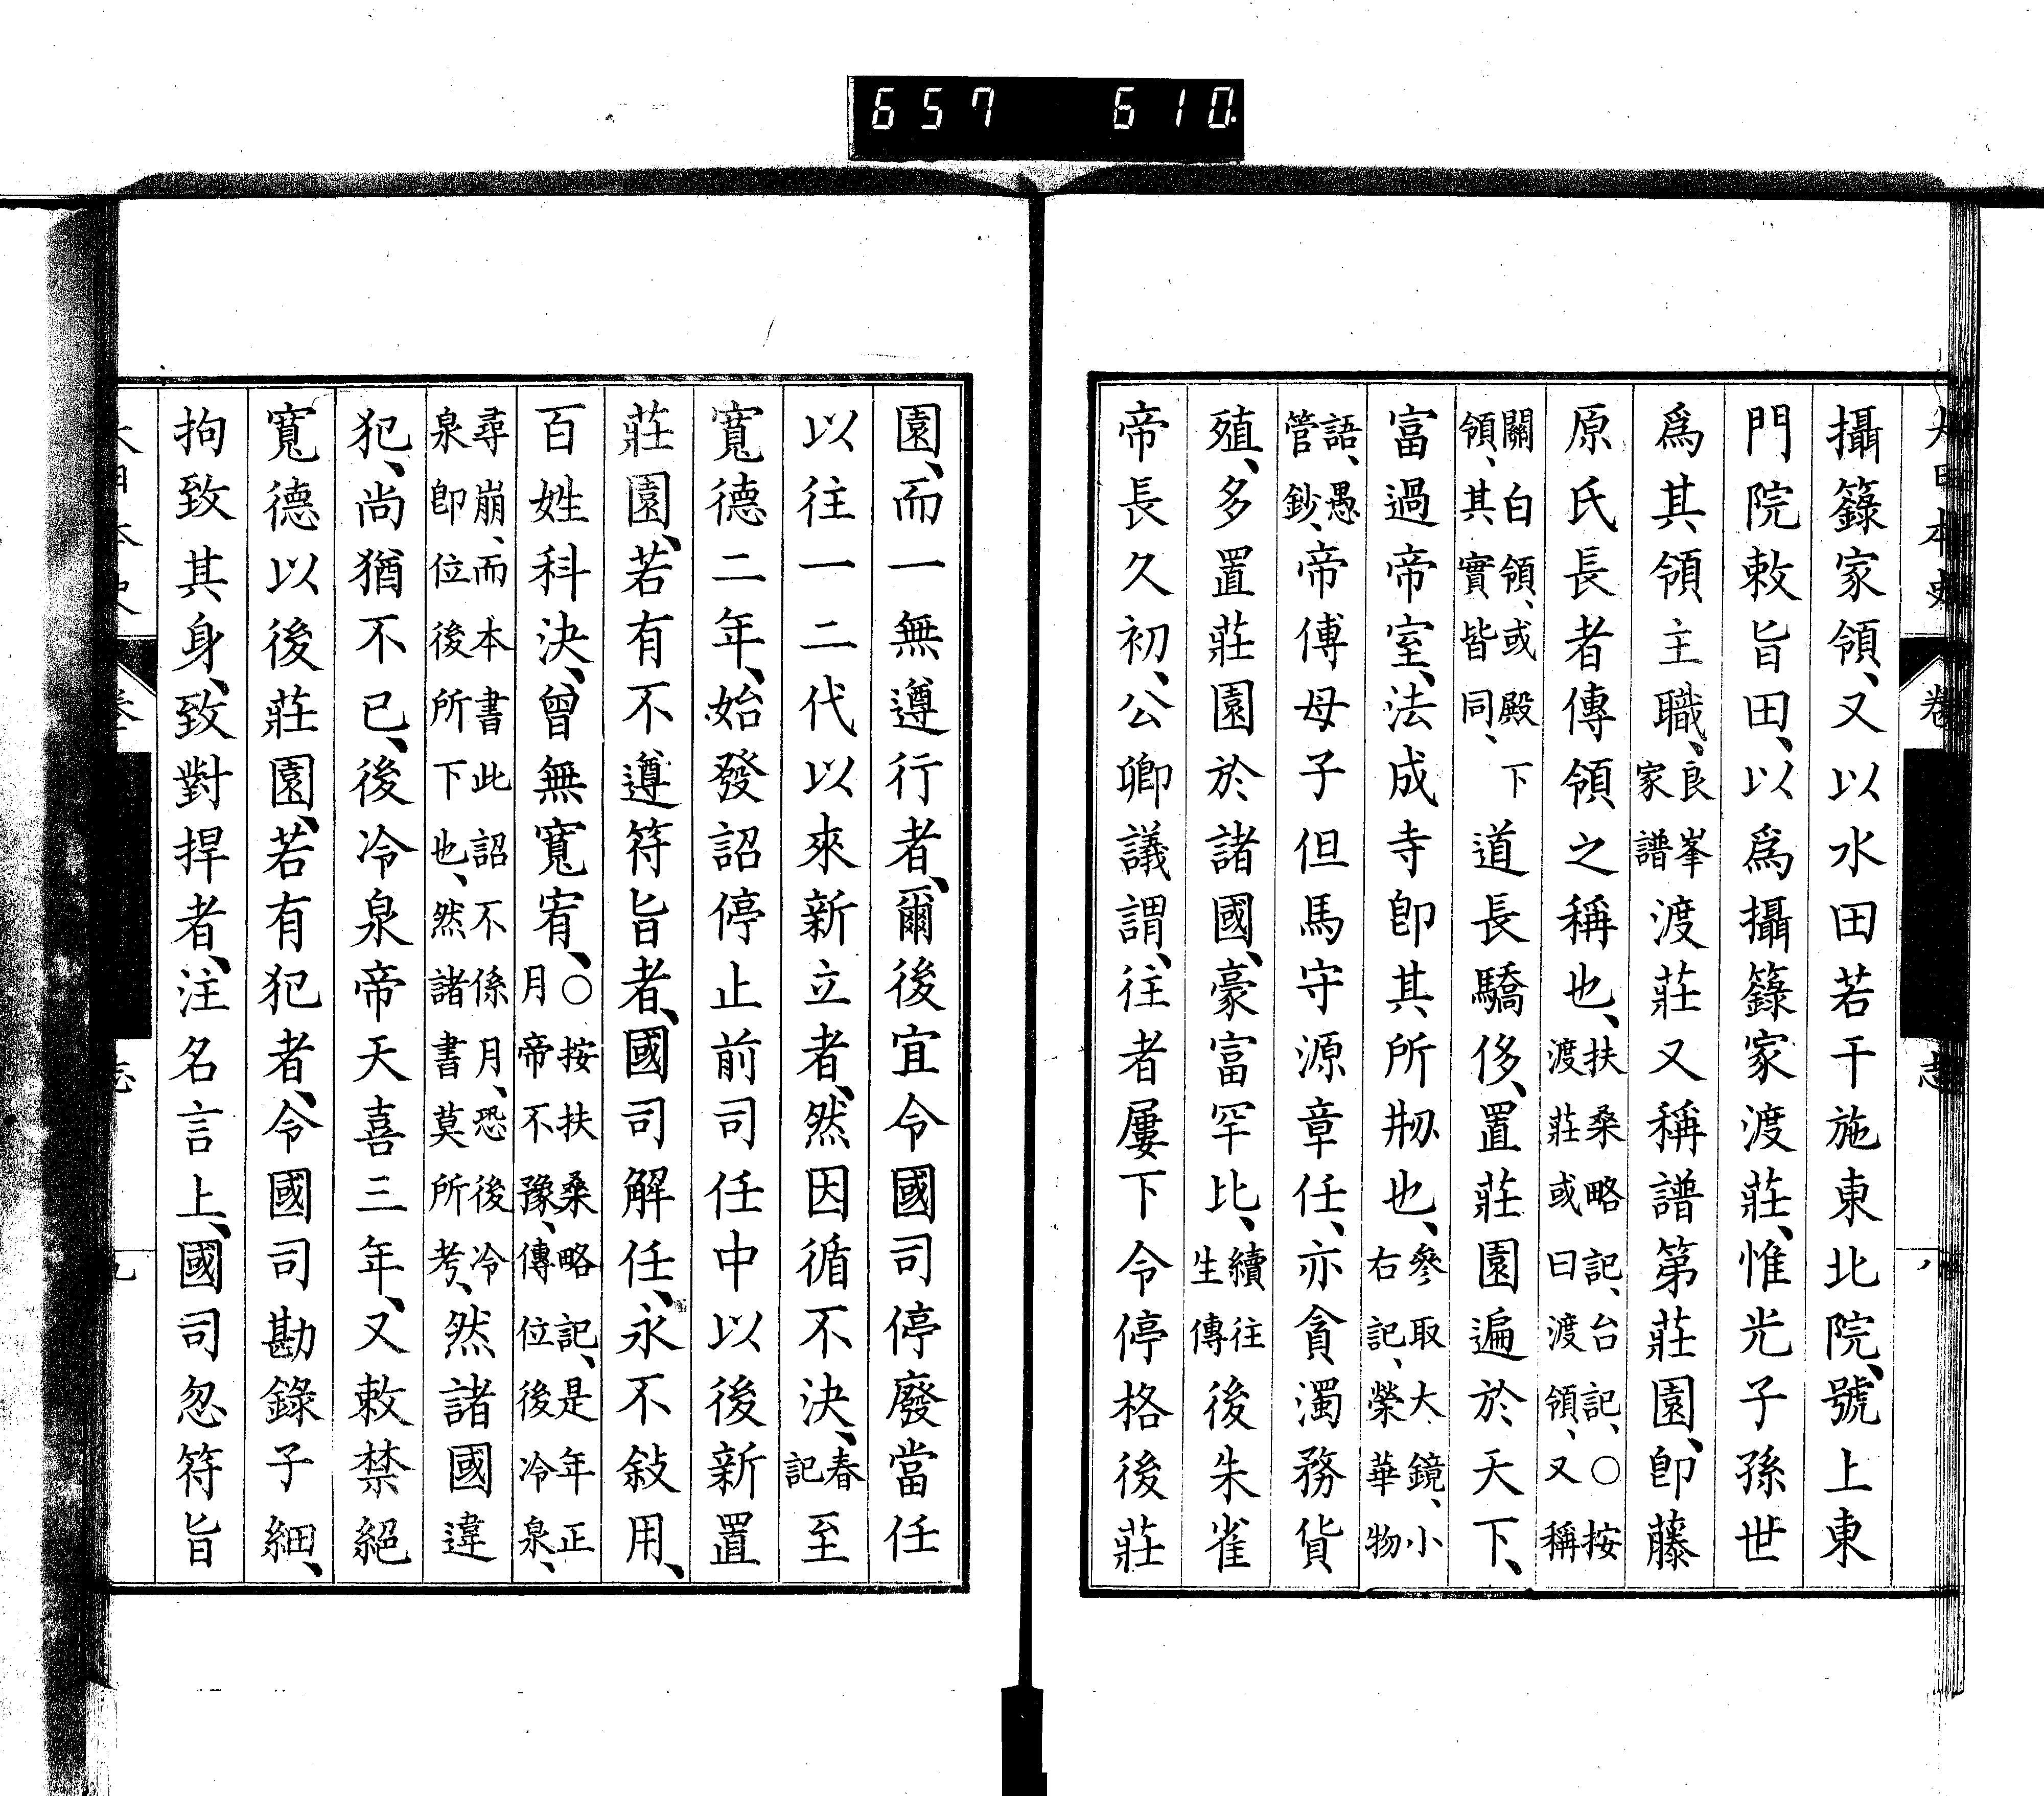 657 610
大日本史 卷 志 八
攝籙家領、又以水田若干施東北院、號上東
門院敕旨田、以爲攝籙家渡莊、惟光子孫世
爲其領主職、良峯家譜渡莊又稱譜第莊園、卽藤
原氏長者傳領之稱也、扶桑略記、台記、〇按渡莊或曰渡領、又稱
關白領、或殿下領、其實皆同、道長驕侈、置莊園遍於天下、
富過帝室、法成寺卽其所刱也、參取大鏡、小右記、榮華物
語、愚管鈔、帝傅母子但馬守源章任、亦貪濁務貨
殖、多置莊園於諸國、豪富罕比、續往生傳後朱雀
帝長久初、公卿議謂、往者屢下令停格後莊
園、而一無遵行者、爾後宜令國司停廢當任
以往一二代以來新立者、然因循不決、春記至
寬德二年、始發詔停止前司任中以後新置
莊園、若有不遵符旨者、國司解任、永不敍用、
百姓科決、曾無寬宥、〇按扶桑略記、是年正月帝不豫、傳位後冷泉、
尋崩、而本書此詔不係月、恐後冷泉卽位後所下也、然諸書莫所考、然諸國違
犯、尚猶不已、後冷泉帝天喜三年、又敕禁絕
寬德以後莊園、若有犯者、令國司勘錄子細、
拘致其身、致對捍者、注名言上、國司忽符旨
大日本史 卷 志 九